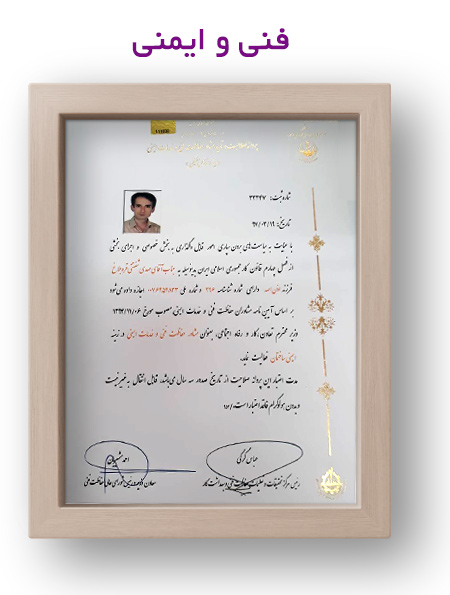 فنی و ایمنی
شماره ثبت: ۳۲۲۴۷
تاریخ: ۹۷/۰۲/۱۹
با عنایت به سیاست‌های برون سپاری امور قابل واگذاری به بخش خصوصی و اجرای بخشی
از فصل چهارم قانون کار جمهوری اسلامی ایران بدینوسیله به جناب آقای مهدی
فرزند دارای شماره شناسنامه ۲۹۶ و شماره ملی اجازه داده می‌شود
بر اساس آیین نامه مشاوران حفاظت فنی و خدمات ایمنی مصوب مورخ ۱۳۹۳/۱۱/۰۶
وزیر محترم تعاون، کار و رفاه اجتماعی، بعنوان مشاور حفاظت فنی و خدمات ایمنی در زمینه
ایمنی ساختمان فعالیت نماید.
مدت اعتبار این پروانه صلاحیت از تاریخ صدور سه سال می‌باشد، قابل انتقال به غیر نیست
و بدون هولوگرام فاقد اعتبار است.
عباس
رئیس مرکز تحقیقات و تعلیمات حفاظت فنی و بهداشت کار